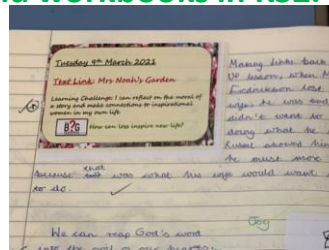 Tuesday 9th March 2021
Text Link: Mrs Noah's Garden
Learning Challenge: I can reflect on the moral of
a story and make connections to inspirational
women in my own life.
B2G How can loss inspire new life?
Making links back
UP lesson, when M
Fredrickson lost
wife he was and
didn't want to
doing what he
Russel showed him
he must move
because that was what his wife would want
to do.
Joy
We can reap God's word